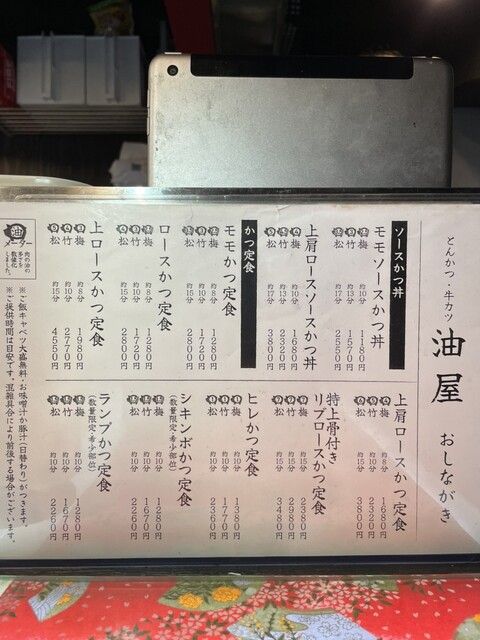 とんかつ・牛カツ
油屋
おしながき
ソースかつ丼
モモソースかつ丼
梅 約10分 1180円
竹 約13分 1570円
松 約17分 2550円
上肩ロースソースかつ丼
梅 約10分 1680円
竹 約13分
松 約17分 3800円
かつ定食
モモかつ定食
梅 約8分 1280円
竹 約10分 1720円
松 約15分 2800円
ロースかつ定食
梅 約8分 1280円
竹 約10分 1720円
松 約15分 2800円
上ロースかつ定食
梅 約8分 1980円
竹 約10分 2770円
松 約15分 4550円
上肩ロースかつ定食
梅 約8分 1680円
竹 約10分
松 約15分 3800円
特上骨付き
リブロースかつ定食
梅 約15分 2380円
竹 約15分 2980円
松 約15分 3480円
ヒレかつ定食
梅 約10分 1380円
竹 約10分 1770円
松 約10分 2360円
シキンボかつ定食
(数量限定・希少部位)
梅 約10分 1280円
竹 約10分 1670円
松 約10分 2260円
ランプかつ定食
(数量限定・希少部位)
梅 約10分 1280円
竹 約10分 1670円
松 約10分 2260円
油
メーター
肉の油の
多さを
数値化
しました。
※ご飯キャベツ大盛無料・お味噌汁か豚汁(日替わり)がつきます。
※ご提供時間は目安です。混雑具合により前後する場合がございます。